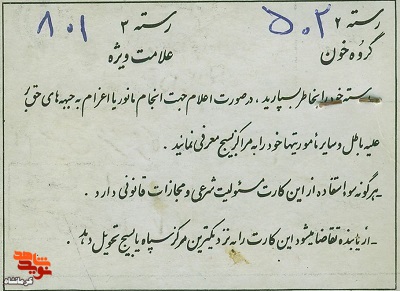 رسته ۲ ۵۰۲ رسته ۳ ۸۰۱
گروه خون علامت ویژه
- رسته خود را بخاطر بسپارید ، در صورت اعلام جهت انجام مانور یا اعزام به جبهه های حق بر
علیه باطل و سایر مأموریتها خود را به مراکز بسیج معرفی نمائید .
- هرگونه سوء استفاده از این کارت مسئولیت شرعی و مجازات قانونی دارد .
- از یابنده تقاضا میشود این کارت را به نزدیکترین مرکز سپاه یا بسیج تحویل دهد .
نوید شاهد
کرمانشاه